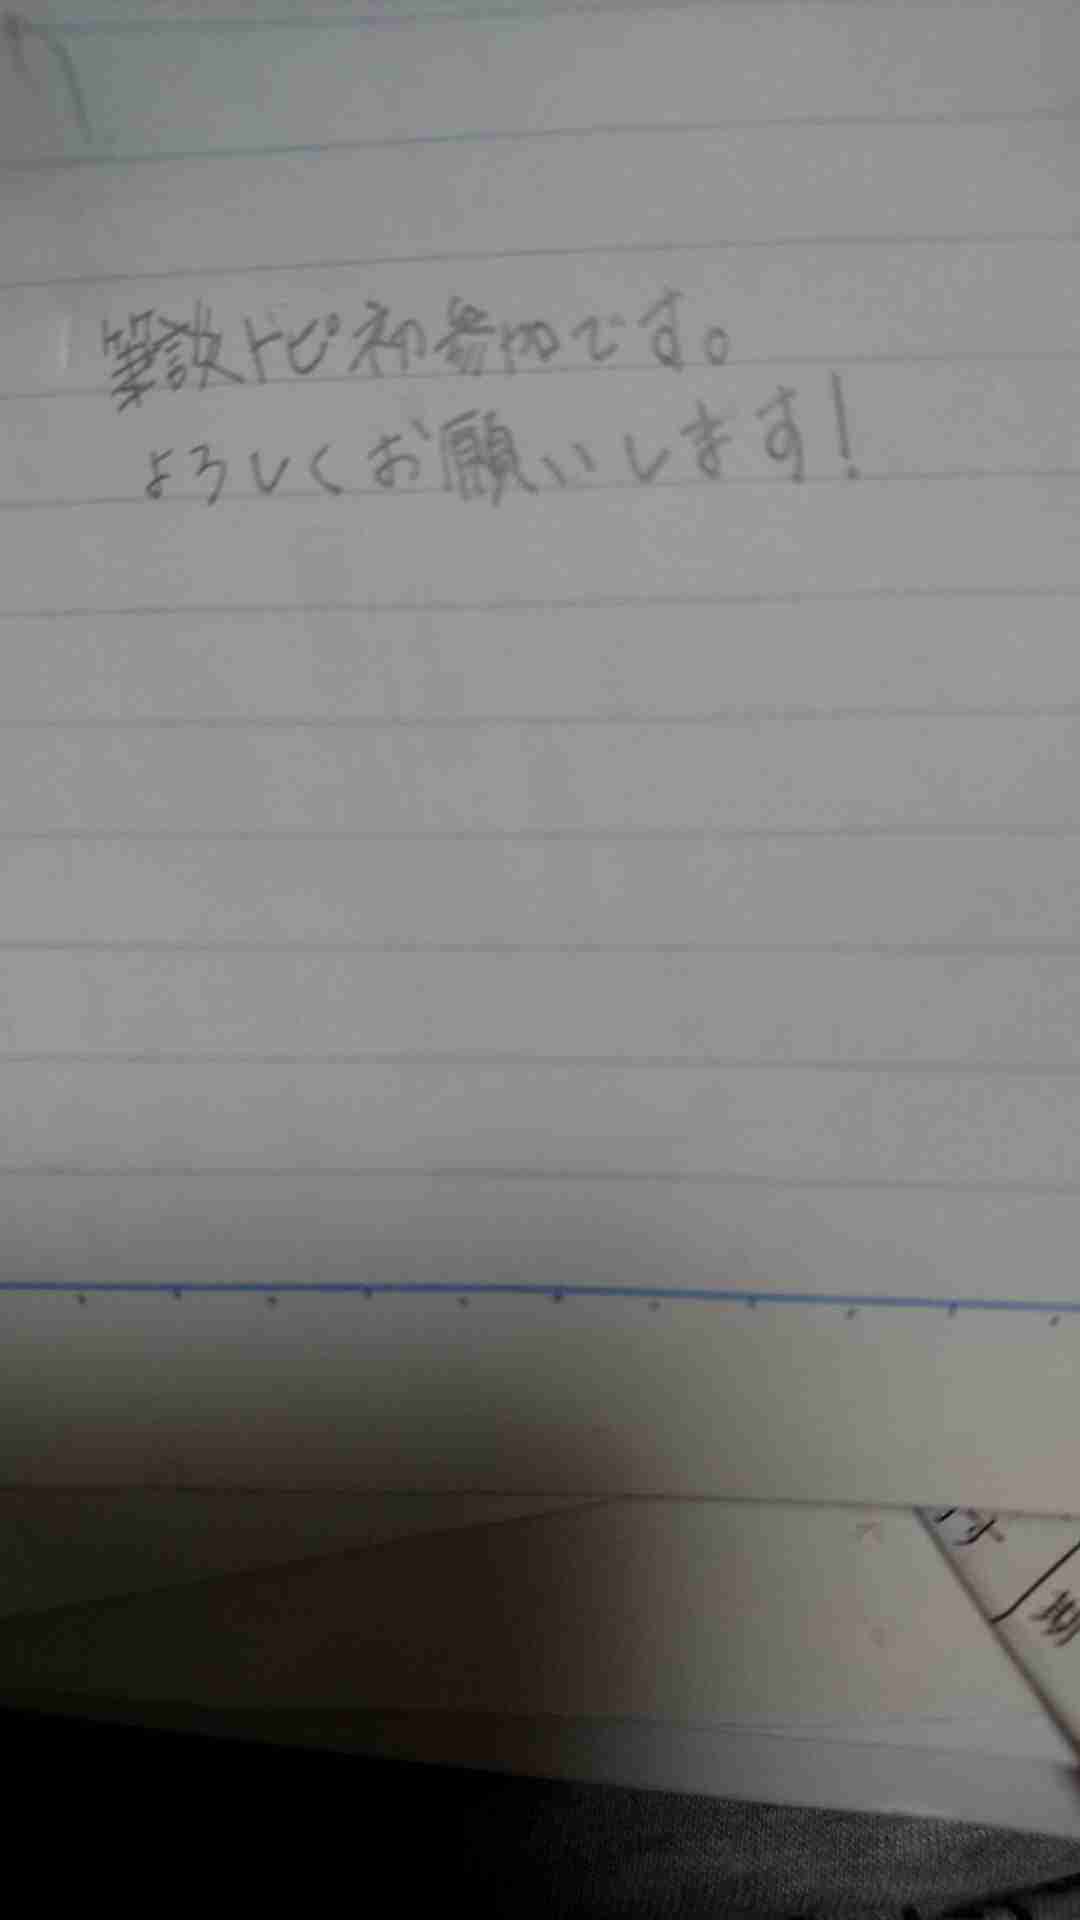 筆談トピ初参加です。
よろしくお願いします!